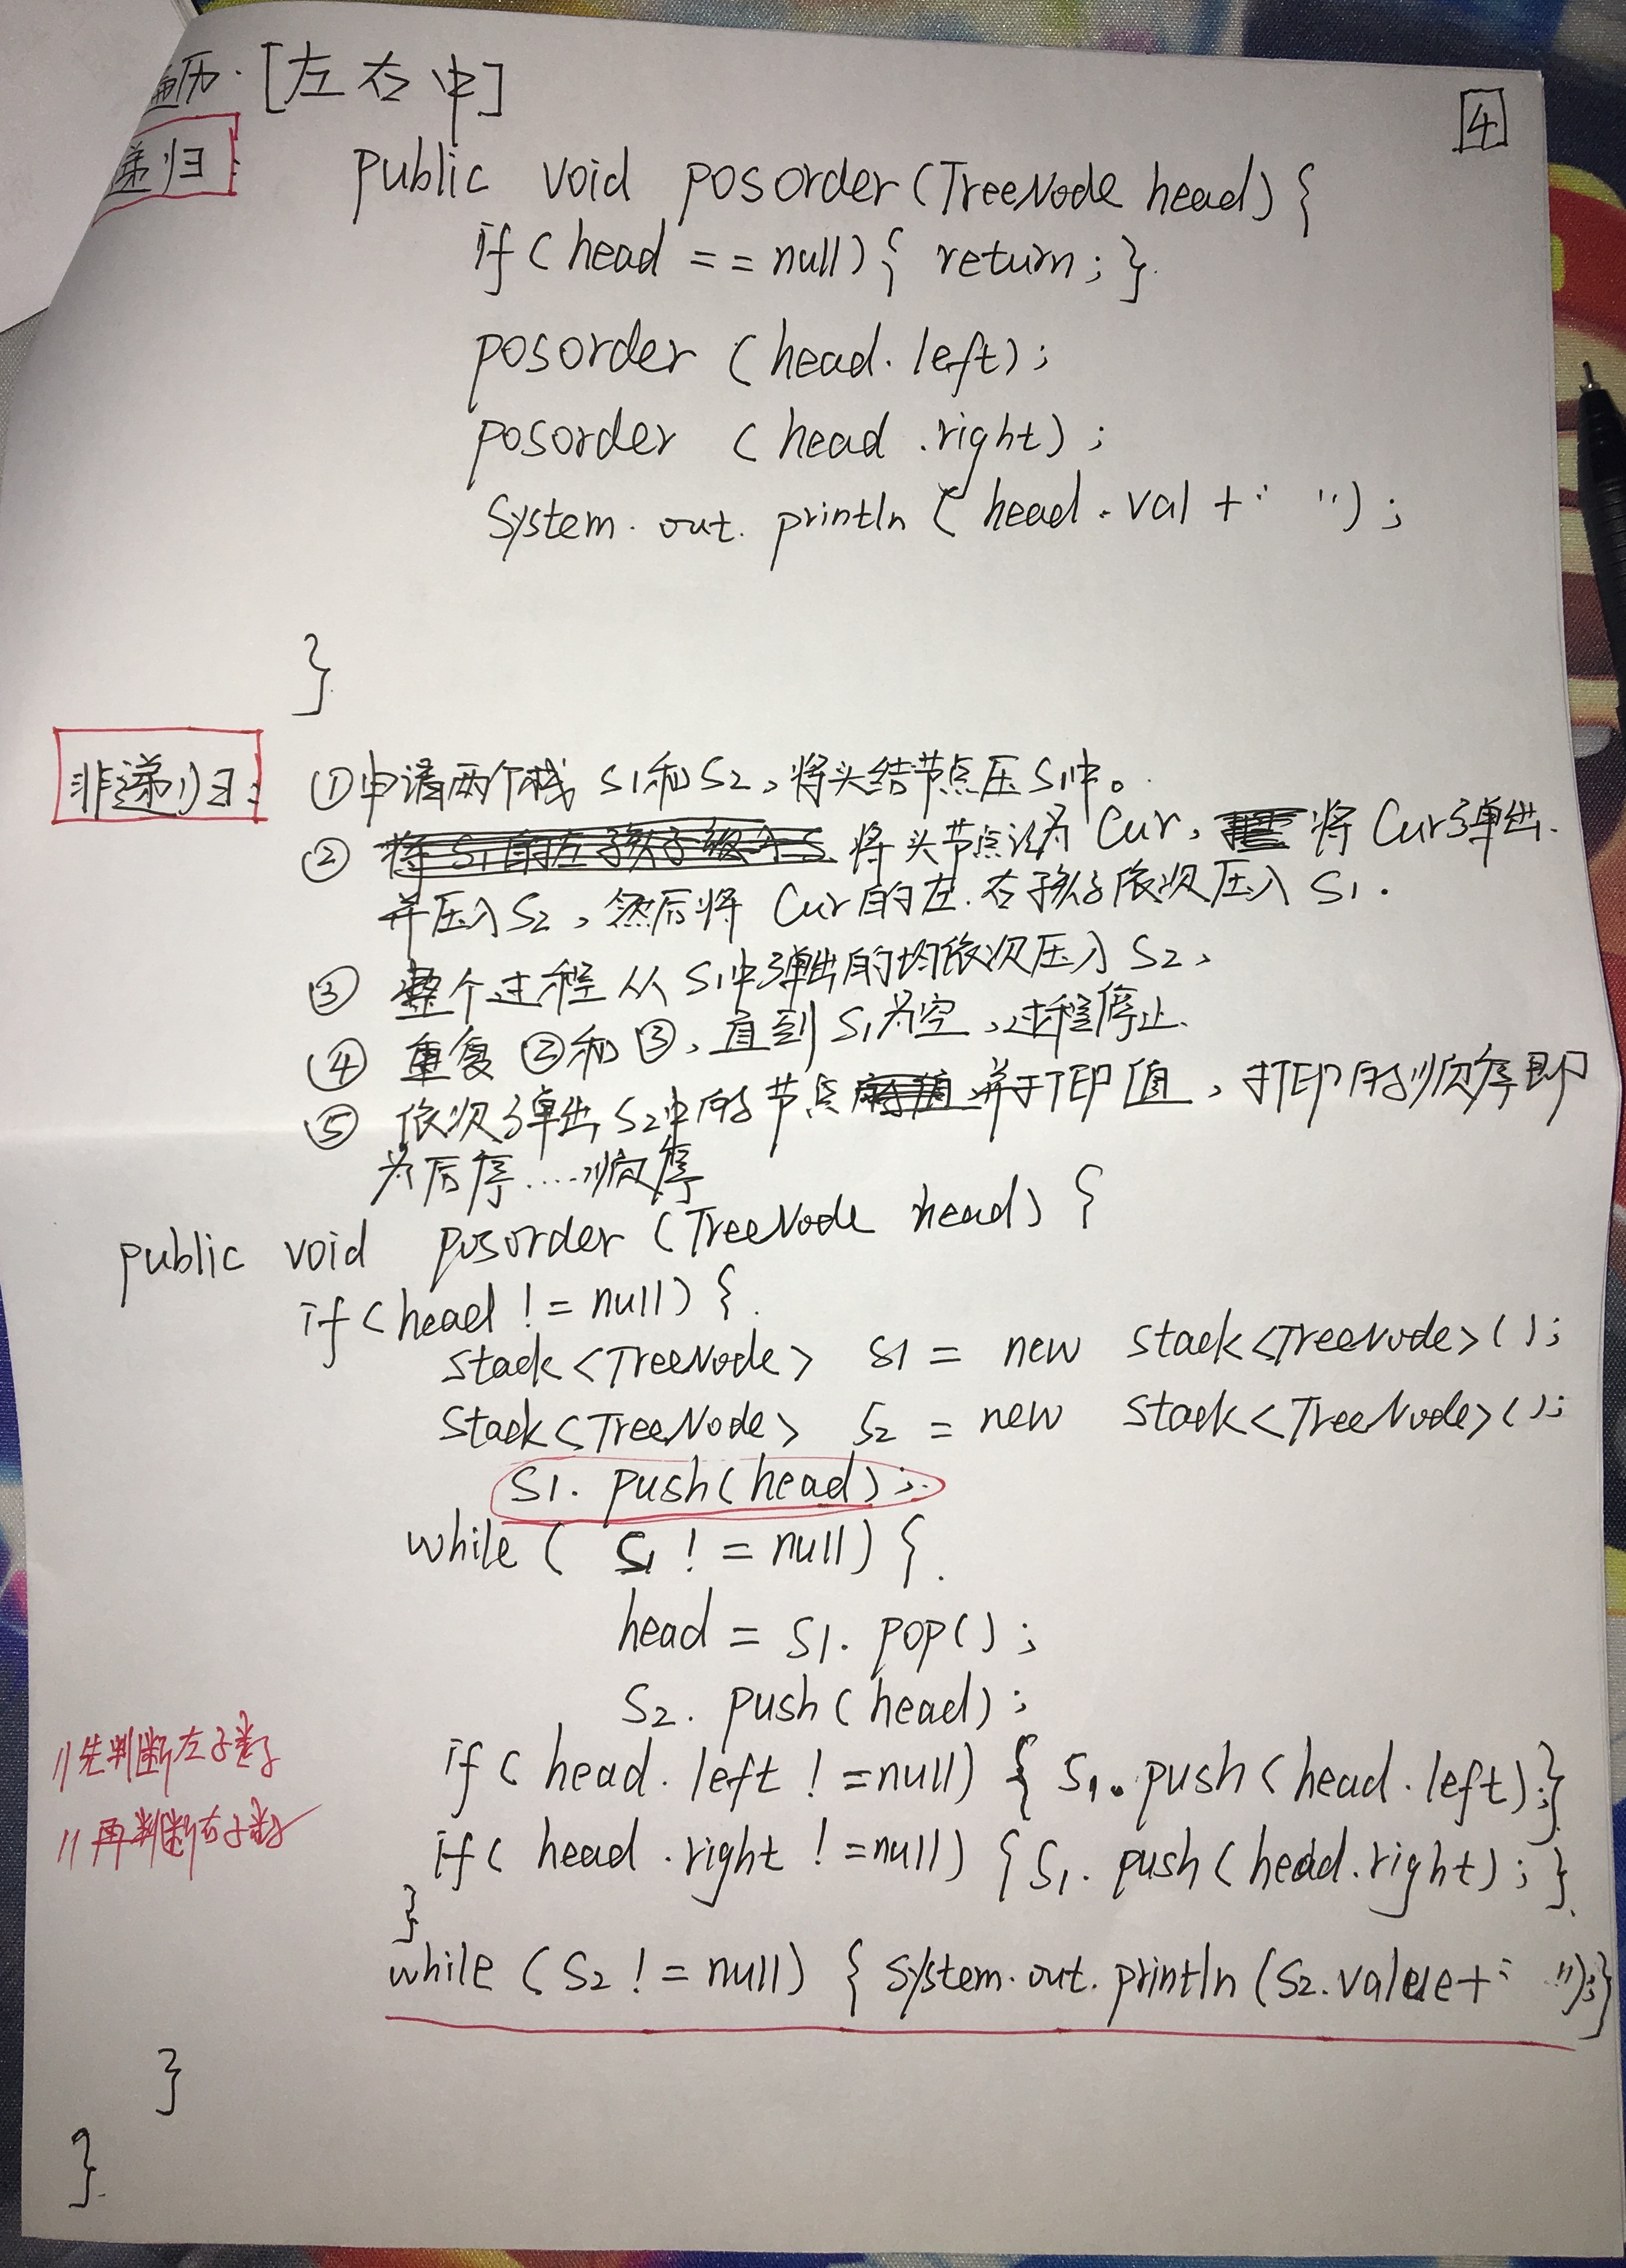 遍历·[左右中]
4
递归:
public void posorder(TreeNode head){
if(head == null){ return; }
posorder (head.left);
posorder (head.right);
System.out.println(head.val+" ");
}
非递归:
①申请两个栈 S1和S2,将头结节点压S1中。
② 将头节点设为 Cur, 将 Cur弹出
并压入S2,然后将 Cur的左.右孩子依次压入 S1.
③ 整个过程从S1中弹出的均依次压入S2、
④ 重复②和③、直到S1为空,过程停止.
⑤ 依次弹出S2中的节点并打印值,打印的顺序即
为后序....顺序
public void posorder (TreeNode head) {
if(head != null) {
Stack<TreeNode> S1 = new Stack<TreeNode>();
Stack<TreeNode> S2 = new Stack<TreeNode>();
S1.push(head);
while( S1 != null) {
head = S1.pop();
S2.push(head);
//先判断左子数
if( head.left !=null) { S1.push(head.left);}
//再判断右子数
if( head.right !=null) {S1.push(head.right);}
}
while (S2 != null) { System.out.println(S2.value+" ");}
}
}